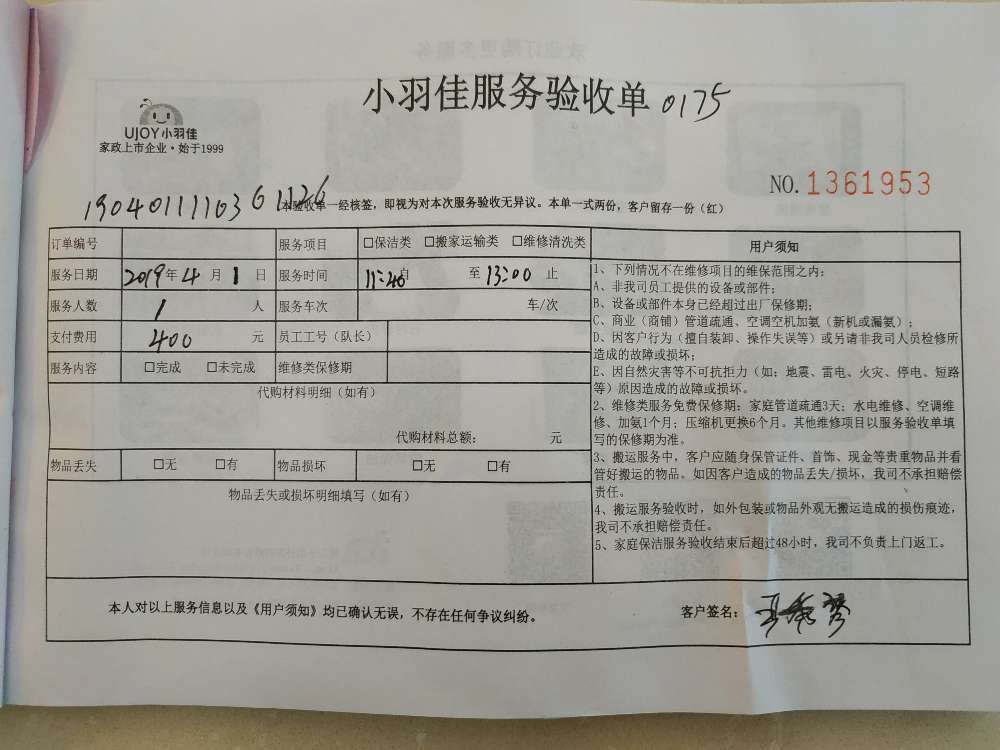 小羽佳服务验收单 0175
UJOY小羽佳
家政上市企业·始于1999
NO.1361953
1904011110361126
本验收单一经核签，即视为对本次服务验收无异议。本单一式两份，客户留存一份（红）
订单编号 服务项目 □保洁类 □搬家运输类 □维修清洗类
服务日期 2019年4月1日 服务时间 11:40自 至13:00止
服务人数 1 人 服务车次 车/次
支付费用 400 元 员工工号（队长）
服务内容 □完成 □未完成 维修类保修期
代购材料明细（如有）
代购材料总额： 元
物品丢失 □无 □有 物品损坏 □无 □有
物品丢失或损坏明细填写（如有）
用户须知
1、下列情况不在维修项目的维保范围之内：
A、非我司员工提供的设备或部件；
B、设备或部件本身已经超过出厂保修期；
C、商业（商铺）管道疏通、空调空机加氨（新机或漏氨）；
D、因客户行为（擅自装卸、操作失误等）或另请非我司人员检修所
造成的故障或损坏；
E、因自然灾害等不可抗拒力（如：地震、雷电、火灾、停电、短路
等）原因造成的故障或损坏。
2、维修类服务免费保修期：家庭管道疏通3天；水电维修、空调维
修、加氨1个月；压缩机更换6个月。其他维修项目以服务验收单填
写的保修期为准。
3、搬运服务中，客户应随身保管证件、首饰、现金等贵重物品并看
管好搬运的物品。如因客户造成的物品丢失/损坏，我司不承担赔偿
责任。
4、搬运服务验收时，如外包装或物品外观无搬运造成的损伤痕迹，
我司不承担赔偿责任。
5、家庭保洁服务验收结束后超过48小时，我司不负责上门返工。
本人对以上服务信息以及《用户须知》均已确认无误，不存在任何争议纠纷。
客户签名：